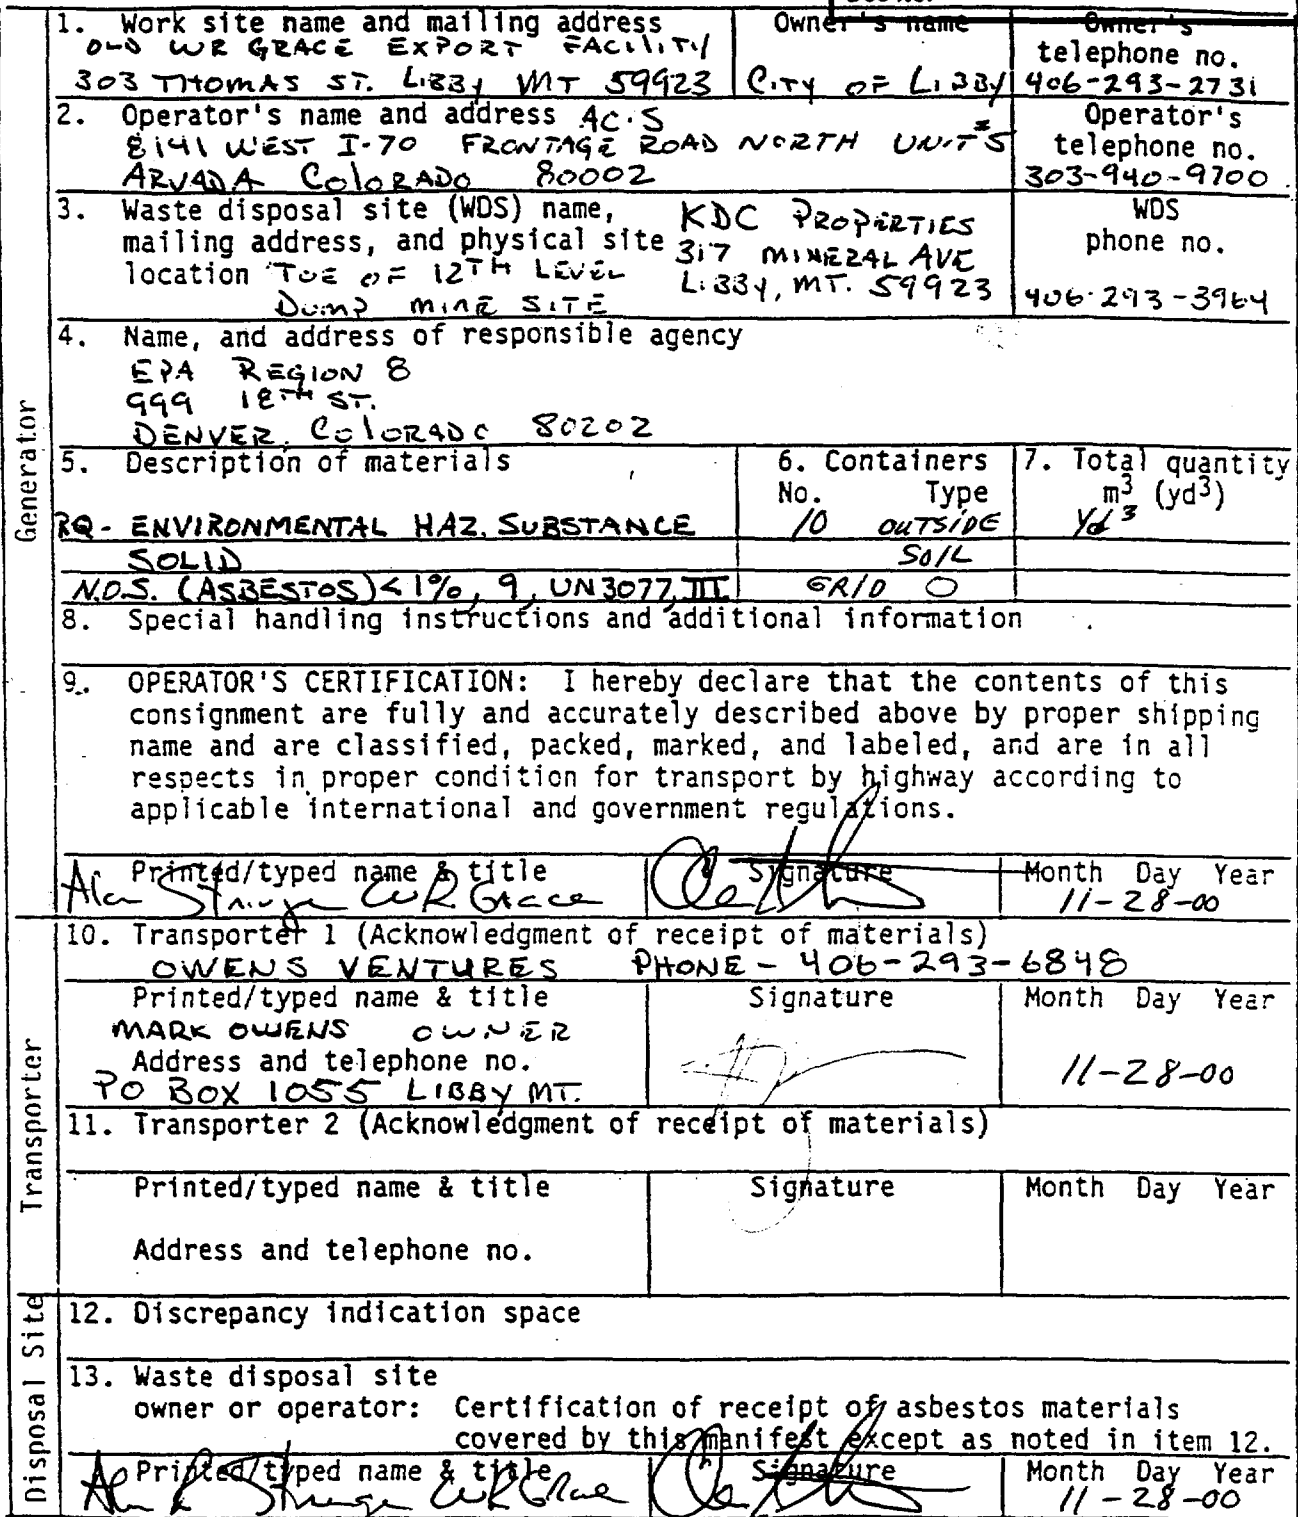 1. Work site name and mailing address
OLD WR GRACE EXPORT FACILITY
303 THOMAS ST. LIBBY MT 59923
Owner's name
CITY OF LIBBY
Owner's
telephone no.
406-293-2731
2. Operator's name and address AC·S
8141 WEST I-70 FRONTAGE ROAD NORTH UNIT #5
ARVADA COLORADO 80002
Operator's
telephone no.
303-940-9700
3. Waste disposal site (WDS) name,
mailing address, and physical site
location TOE OF 12TH LEVEL
DUMP MINE SITE
KDC PROPERTIES
317 MINERAL AVE
LIBBY, MT. 59923
WDS
phone no.
406-293-3964
4. Name, and address of responsible agency
EPA REGION 8
999 18TH ST.
DENVER, COLORADO 80202
Generator
5. Description of materials
6. Containers
No. Type
7. Total quantity
m3 (yd3)
RQ - ENVIRONMENTAL HAZ. SUBSTANCE
10 OUTSIDE
Yd3
SOLID
SOIL
N.O.S. (ASBESTOS) < 1%, 9, UN3077, III
GRID O
8. Special handling instructions and additional information
9. OPERATOR'S CERTIFICATION: I hereby declare that the contents of this
consignment are fully and accurately described above by proper shipping
name and are classified, packed, marked, and labeled, and are in all
respects in proper condition for transport by highway according to
applicable international and government regulations.
Printed/typed name & title
Signature
Month Day Year
Alan Stringer WR Grace
11-28-00
Transporter
10. Transporter 1 (Acknowledgment of receipt of materials)
OWENS VENTURES PHONE - 406-293-6848
Printed/typed name & title
Signature
Month Day Year
MARK OWENS OWNER
Address and telephone no.
PO BOX 1055 LIBBY MT.
11-28-00
11. Transporter 2 (Acknowledgment of receipt of materials)
Printed/typed name & title
Signature
Month Day Year
Address and telephone no.
Disposal Site
12. Discrepancy indication space
13. Waste disposal site
owner or operator: Certification of receipt of asbestos materials
covered by this manifest except as noted in item 12.
Printed/typed name & title
Signature
Month Day Year
Alan R Stringer WR Grace
11-28-00